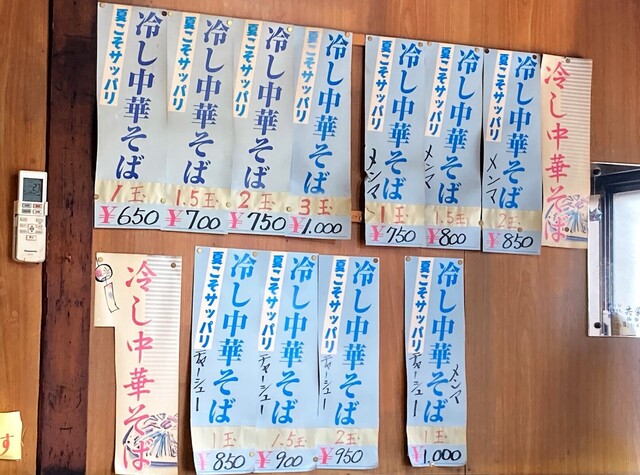 冷し中華そば
夏こそサッパリ
1玉
¥650
冷し中華そば
夏こそサッパリ
1.5玉
¥700
冷し中華そば
夏こそサッパリ
2玉
¥750
冷し中華そば
夏こそサッパリ
3玉
¥1,000
冷し中華そば
夏こそサッパリ
メンマ
1玉
¥750
冷し中華そば
夏こそサッパリ
メンマ
1.5玉
¥800
冷し中華そば
夏こそサッパリ
メンマ
2玉
¥850
冷し中華そば
冷し中華そば
冷し中華そば
夏こそサッパリ
チャーシュー
1玉
¥850
冷し中華そば
夏こそサッパリ
チャーシュー
1.5玉
¥900
冷し中華そば
夏こそサッパリ
チャーシュー
2玉
¥950
冷し中華そば
夏こそサッパリ
メンマ
チャーシュー
1玉
¥1,000
す